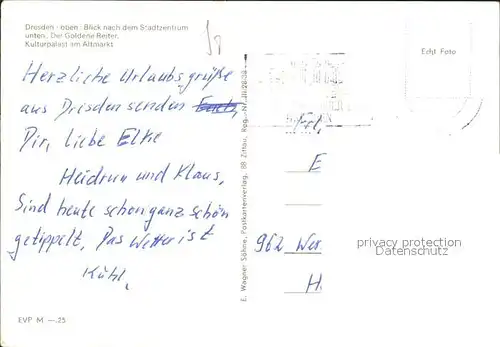 Dresden - oben: Blick nach dem Stadtzentrum
unten: Der Goldene Reiter,
Kulturpalast am Altmarkt
Echt Foto
Herzliche Urlaubsgrüße
aus Dresden senden Euch,
Dir, liebe Elke
Heidrun und Klaus,
Sind heute schon ganz schön
getippelt, Das Wetter ist
Kühl,
E. Wagner Söhne, Postkartenverlag, 88 Zittau, Reg.-Nr.
Frl,
E
962 Wer
H
privacy protection
Datenschutz
EVP M -.25